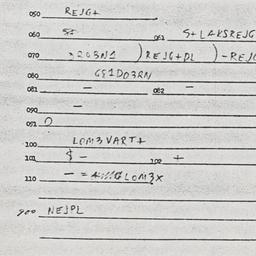 050 REJG+
060 S+ 061 S+LAKSREJG
070 )REJG+PL )-REJG
080 GE1DO3RN
081 - 082 -
090 -
091
100 LOM3VART+
101 $ - 102 +
110 - = LOM3X
900 NEJPL